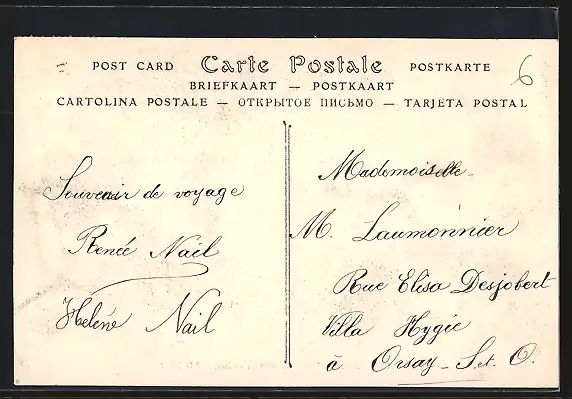 POST CARD Carte Postale POSTKARTE
BRIEFKAART — POSTKAART
CARTOLINA POSTALE — ОТКРЫТОЕ ПИСЬМО — TARJETA POSTAL
6
Souvenir de voyage
Renée Nail
Heléne Nail
Mademoiselle
M. Laumonnier
Rue Elisa Desjobert
Villa Hygie
à Orsay - S. et. O.